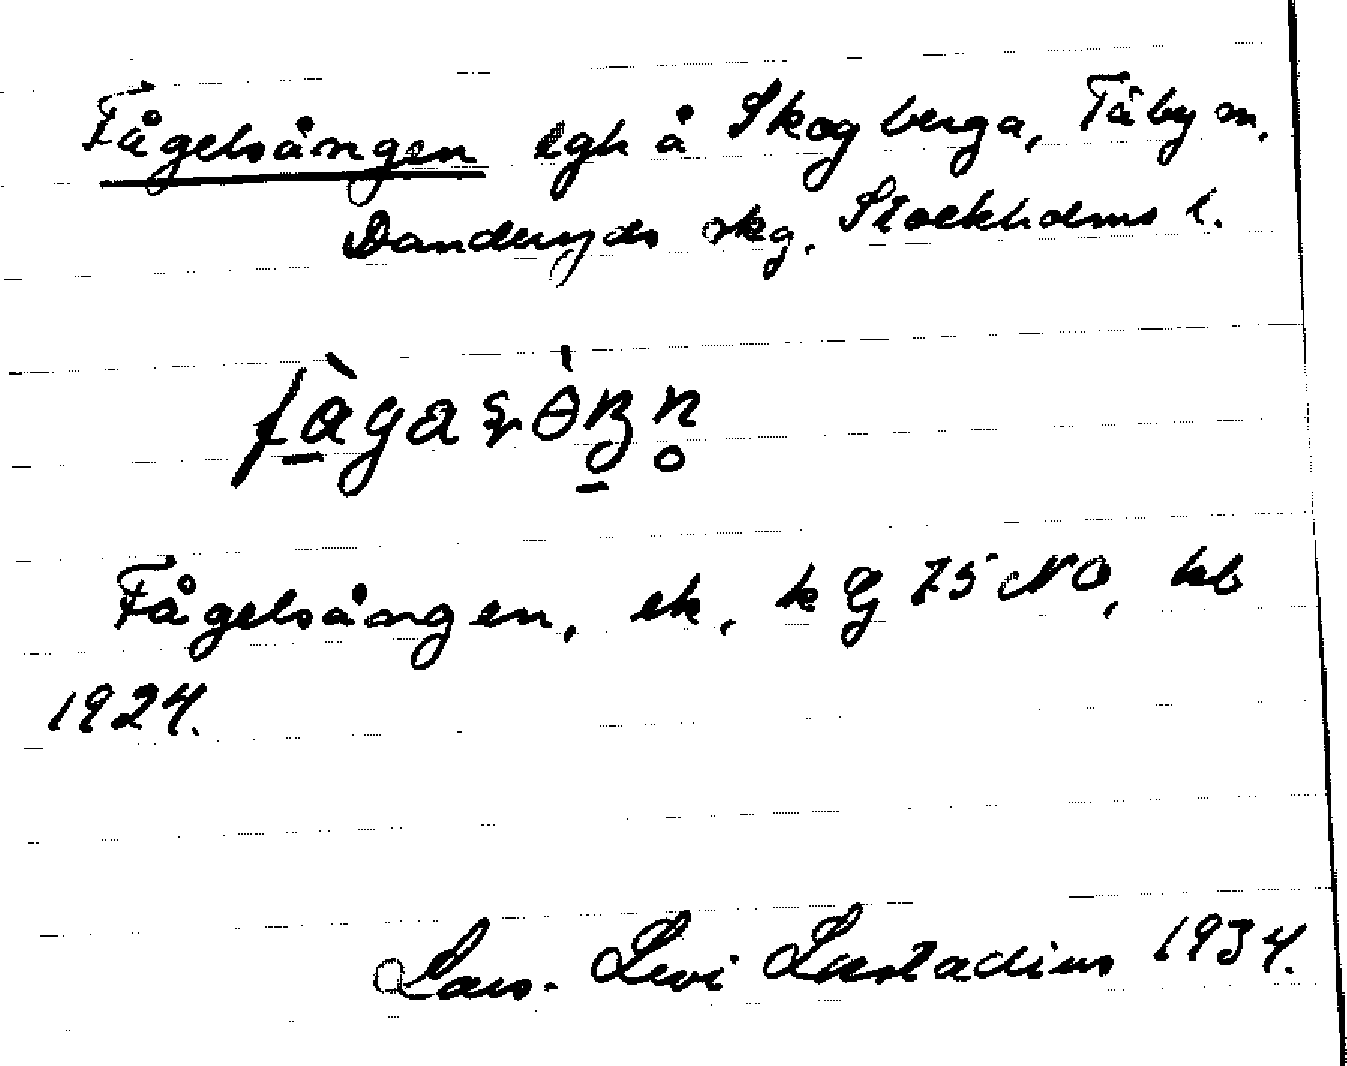 Fågelsången lgh å Skogberga, Täby sn,
Danderyds skg, Stockholms l.
Fågelsången, ek, k G 75 NO, kb
1924.
Lars-Levi Læstadius 1934.